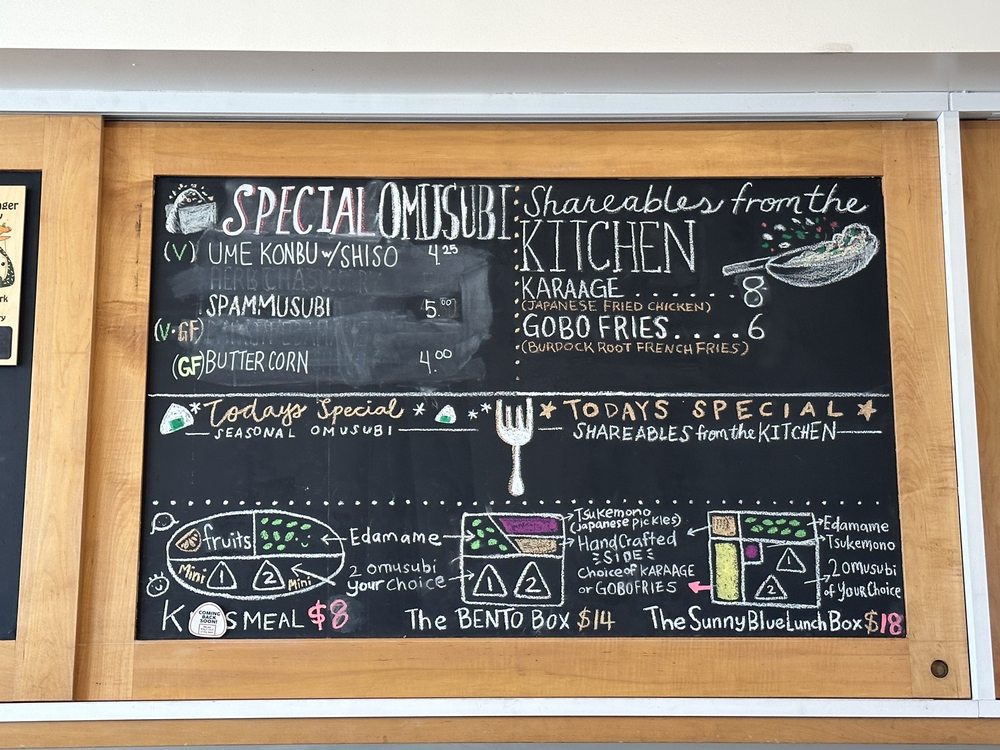 nger
rk
ry
SPECIAL OMUSUBI
(V) UME KONBU w/ SHISO 4.25
SPAM MUSUBI 5.00
(V·GF)
(GF) BUTTER CORN 4.00
Shareables from the
KITCHEN
KARAAGE ....... 8
(JAPANESE FRIED CHICKEN)
GOBO FRIES.... 6
(BURDOCK ROOT FRENCH FRIES)
*Todays Special*
SEASONAL OMUSUBI
TODAYS SPECIAL
SHAREABLES from the KITCHEN
fruits
Mini 1 2 Mini
Edamame
2 omusubi
your choice
KIDS MEAL $8
COMING
BACK
SOON!
1 2
Tsukemono
(Japanese Pickles)
HandCrafted
SIDE
Choice of KARAAGE
or GOBO FRIES
The BENTO Box $14
1
2
Edamame
Tsukemono
2 omusubi
of YOUR Choice
The Sunny Blue Lunch Box $18